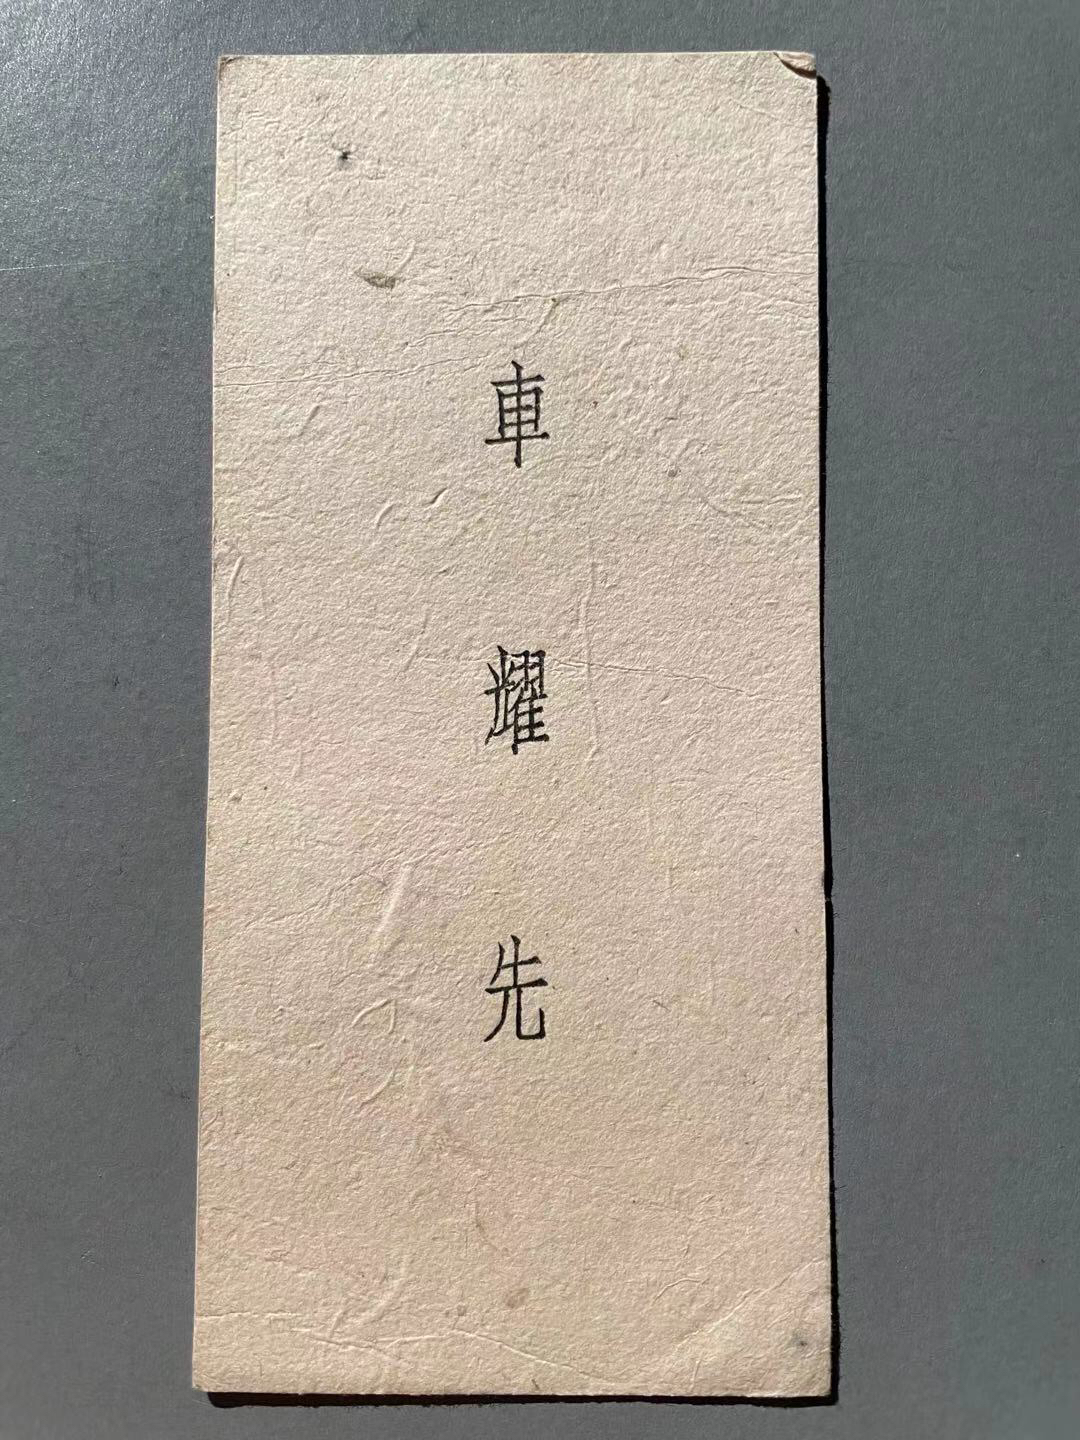 車耀先